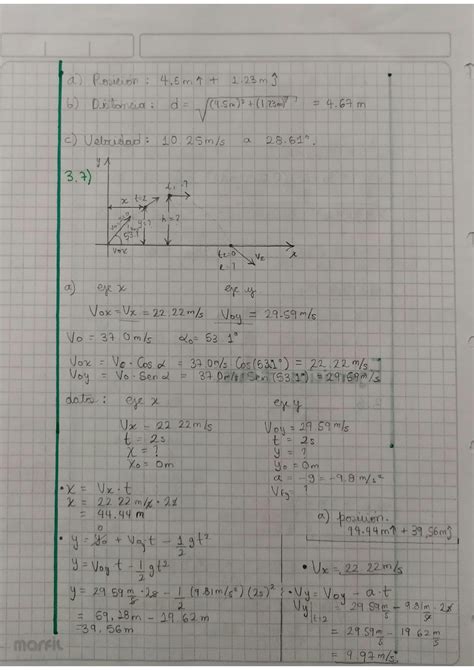 a) Posición: 4,5m↑ + 1.23m↑
b) Distancia: d = √(4.5m)²+(1.23m)² = 4.67 m
c) Velocidad: 10.25m/s a 28.61°.
3.7)
y
x t=2 α.-?
53.1° y=? h=?
Vox
x
t=0
Vx
a) eje x eje y
Vox=Vx=22,22m/s Voy = 29.59m/s
Vo = 37.0m/s αo= 53 1°
Vox = Vo·Cosα = 37.0m/s Cos(53.1°) = 22,22 m/s
Voy = Vo·Senα = 37.0m/s Sen(53.1°) = 29.59m/s
datos: eje x eje y
Vx = 22 22m/s Voy = 29 59m/s
t = 2s t = 2s
x = ? y = ?
xo = 0m yo = 0m
a = -g = -9,8m/s²
a) posición.
44.44m↑ + 39,56m↑
• x = Vx·t
x = 22 22 m/s · 2s
= 44.44 m
0
• y = yo + Voyt - 1/2 gt²
y = Voy t - 1/2 gt²
y = 29 59m/s · 2s - 1/2 (9.81m/s²)(2s)²
= 59,18m - 19.62m
= 39,56m
• Vx = 22 22m/s
• Vy = Voy - a·t
Vy|t=2 = 29 59m/s - 9.81m/s² · 2s
= 29 59m/s - 19 62m/s
= 9.97m/s
marfil